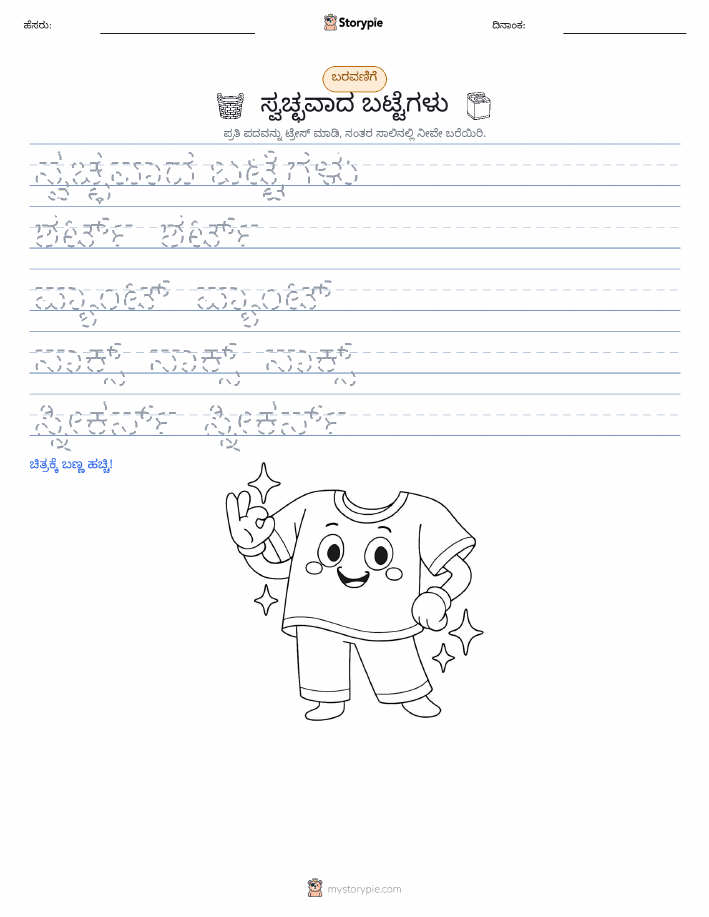 ಹೆಸರು:
Storypie
ದಿನಾಂಕ:
ಬರವಣಿಗೆ
ಸ್ವಚ್ಛವಾದ ಬಟ್ಟೆಗಳು
ಪ್ರತಿ ಪದವನ್ನು ಟ್ರೇಸ್ ಮಾಡಿ, ನಂತರ ಸಾಲಿನಲ್ಲಿ ನೀವೇ ಬರೆಯಿರಿ.
ಸ್ವಚ್ಛವಾದ ಬಟ್ಟೆಗಳು
ಶರ್ಟ್ ಶರ್ಟ್
ಪ್ಯಾಂಟ್ ಪ್ಯಾಂಟ್
ಸಾಕ್ಸ್ ಸಾಕ್ಸ್ ಸಾಕ್ಸ್
ಸ್ನೀಕರ್ಸ್ ಸ್ನೀಕರ್ಸ್
ಚಿತ್ರಕ್ಕೆ ಬಣ್ಣ ಹಚ್ಚಿ!
mystorypie.com